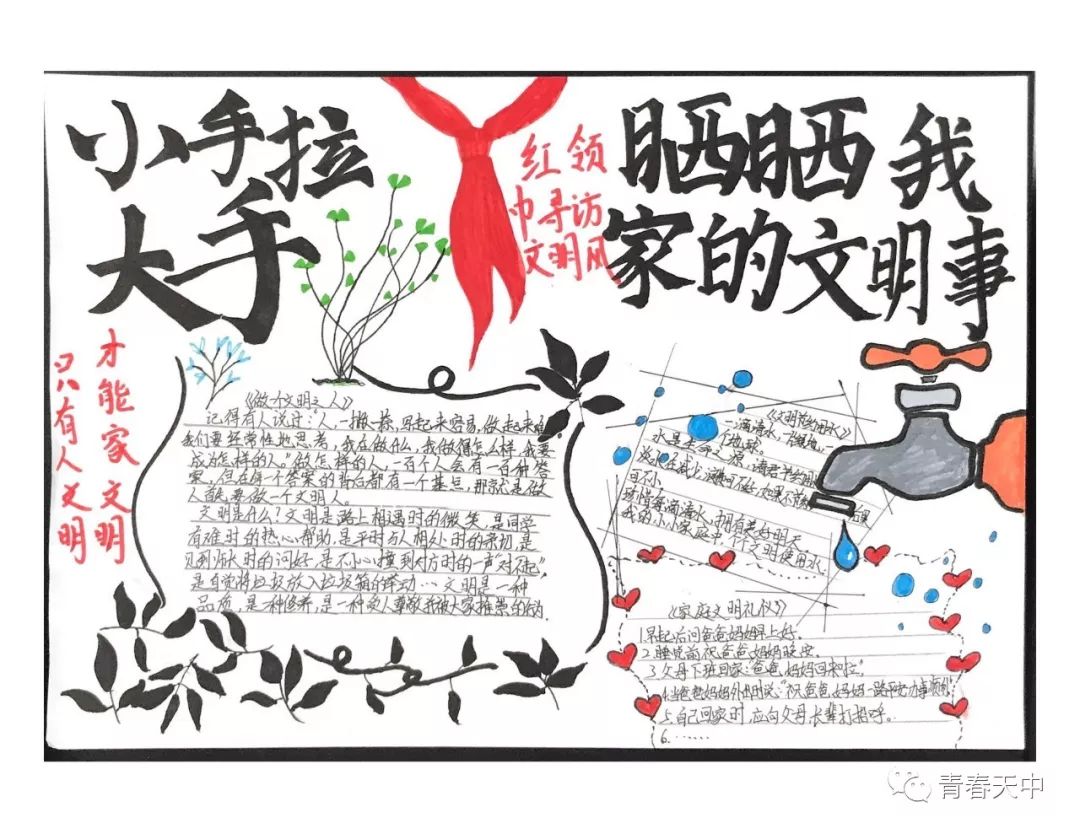 小手拉
大手
红领
巾寻访
文明风
晒晒我
家的文明事
只有人文明
才能家文明
《做个文明之人》
记得有人说过:“人,一撇一捺,写起来容易,做起来难
我们要经常性地思考,我在做什么,我做得怎么样,我要
成为怎样的人。”做怎样的人,一百个人会有一百种答
案,但在每个答案的背后都有一个基点,那就是做
人首先要做一个文明人。
文明是什么?文明是路上相遇时的微笑,是同学
有难时的热心帮助,是平时与人相处时的亲切,是
见到师长时的问好,是不小心撞到对方时的一声“对不起”,
是自觉将垃圾放入垃圾箱的举动…文明是一种
品质,是一种修养,是一种受人尊敬并被大家推崇的
《文明节约用水》
一滴清水,
水是生命之源,请君
淡水在减少,
回不小,
珍惜每滴清水,拥有美好明天。
我的小小家庭中,个个文明使用水.
《家庭文明礼仪》
1.早起后问爸爸妈妈早上好。
2.睡觉前祝爸爸妈妈晚安.
3.父母下班回家:“爸爸,妈妈回来啦”
4.当爸爸妈妈外出时说:“祝爸爸,妈妈一路平安
5.自己回家时,应向父母,长辈打招呼。
6.……
青春天中